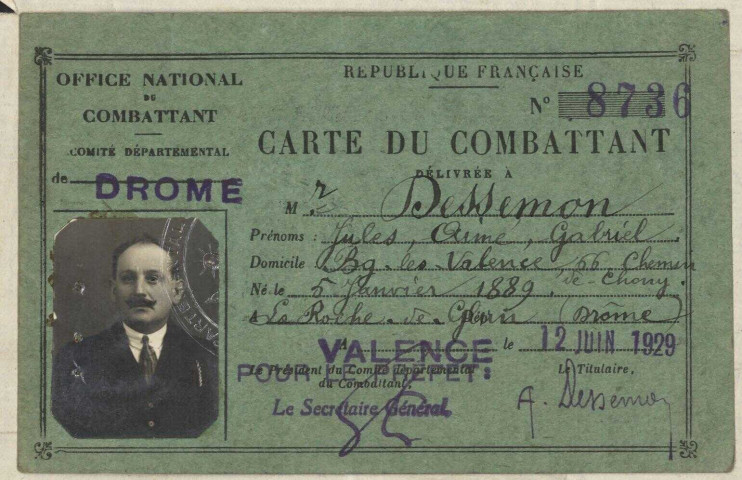 OFFICE NATIONAL
DU
COMBATTANT
COMITÉ DÉPARTEMENTAL
de DROME
REPUBLIQUE FRANÇAISE
N° 8736
CARTE DU COMBATTANT
DÉLIVRÉE À
M r Dessemon
Prénoms : Jules, Aimé, Gabriel
Domicile Bg-les-Valence, 66 Chemin
de-Chony
Né le 5 Janvier 1889
à La Roche-de-Glun (Drôme)
A VALENCE le 12 JUIN 1929
POUR LE PRÉFET:
Le Président du Comité départemental
du Combattant,
Le Titulaire,
Le Secrétaire Général.
A. Dessemon